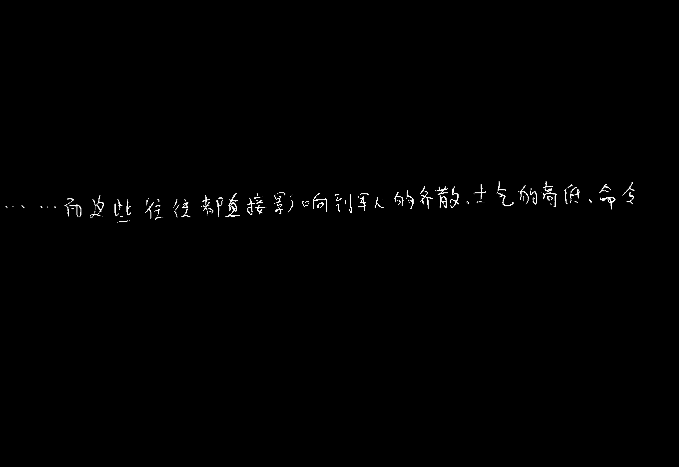 ……而这些往往都直接影响到军人的齐散、士气的高低、命令